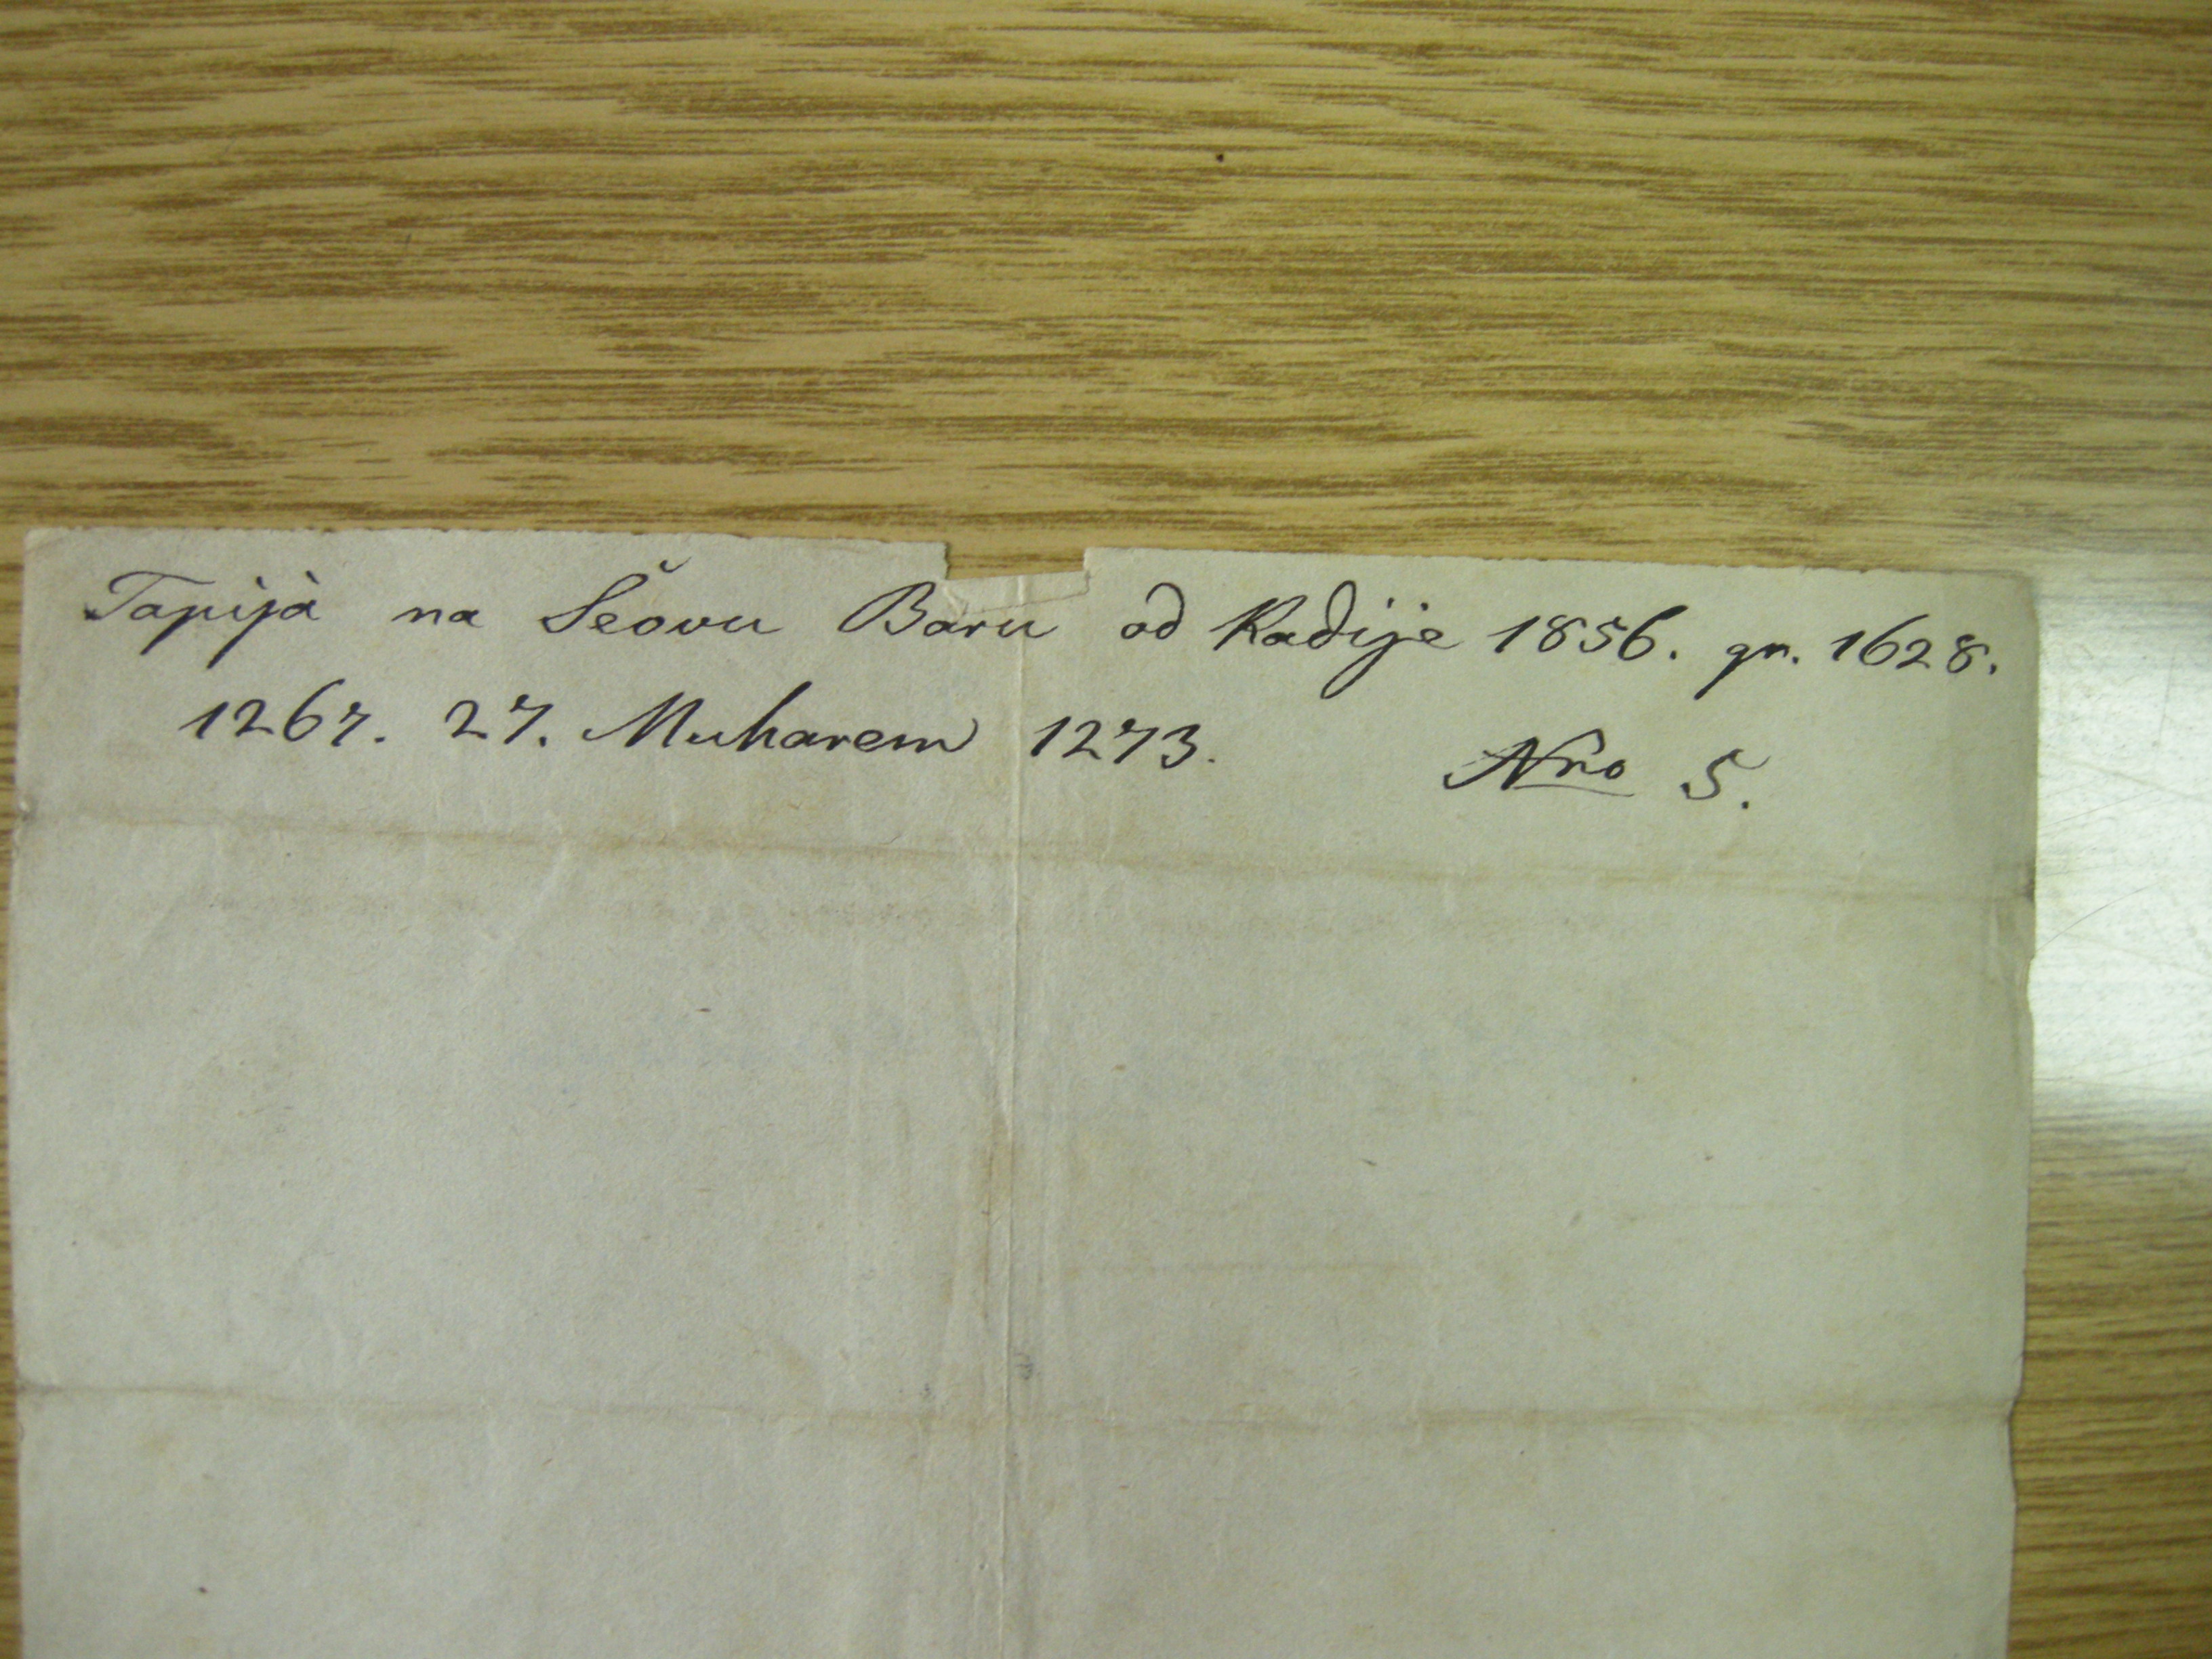 Tapija na Šeovu Baru od Kadije 1856. gr. 1628.
1267. 27. Muharem 1273. Nro 5.